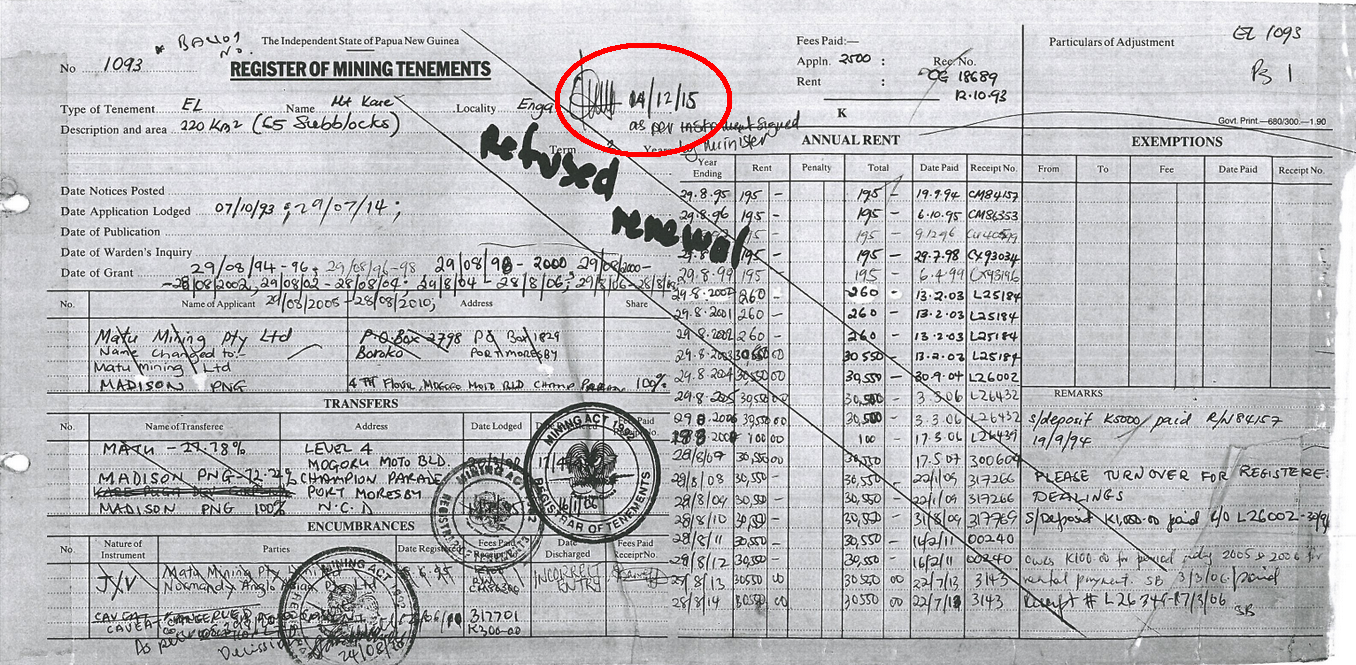 * BALLOT No.
The Independent State of Papua New Guinea
No 1093
REGISTER OF MINING TENEMENTS
Type of Tenement EL Name Mt Kare Locality Enga
Description and area 220 Km2 (65 Subblocks)
Term Years
04/12/15
as per instrument signed
by Minister
Refused
renewal
Date Notices Posted
Date Application Lodged 07/10/93 ; 29/07/14 ;
Date of Publication
Date of Warden's Inquiry
Date of Grant 29/08/94-96, 29/08/96-98 29/08/98 - 2000 29/08/2000-
-28/08/2002, 29/08/02 - 28/08/04; 29/8/04 - 28/8/06; 29/8/06 - 28/8/08
29/08/2008 - 28/08/2010;
No. Name of Applicant Address Share
Matu Mining Pty Ltd P.O.Box 2798 PO Box 1829
Name Changed to:- Boroko PORT MORESBY
Matu Mining Ltd
MADISON PNG 4TH FLOUR, MOGORO MOTO BLD CHAMP PARADE 100%
TRANSFERS
No. Name of Transferee Address Date Lodged Fees Paid Receipt No.
MATU - 27.78% LEVEL 4
MOGORU MOTO BLD.
MADISON PNG-72.22% CHAMPION PARADE
PORT MORESBY
MADISON PNG 100% N.C.D
MINING ACT 1992
REGISTRAR OF TENEMENTS
ENCUMBRANCES
No. Nature of Instrument Parties Date Registered Fees Paid Receipt No. Date Discharged Fees Paid Receipt No.
J/V Matu Mining Pty INCORRECT
Normandy Anglo ENTRY
CAVEAT 317701
CAVEAT K300-00
As per
Decision
24/08
MINING ACT 1992
Fees Paid:—
Appln. 2500 : Rec. No.
Rent : OG 18689
12.10.93
K
ANNUAL RENT
Year Ending Rent Penalty Total Date Paid Receipt No.
29.8.95 195 - 195 - 19.9.94 CM84157
29.8.96 195 - 195 - 6.10.95 CM86353
195 - 9.12.96
29.8. 195 - 195 - 29.7.98 CX93034
29.8.99 195 195 - 6.4.99 CX93196
29.8.2000 260 - 260 - 13.2.03 L25184
29.8.2001 260 - 260 - 13.2.03 L25184
29.8.2002 260 - 260 - 13.2.03 L25184
29.8.2003 30,550 00 30,550 - 13.2.03 L25184
29.8.2004 30,550 00 30,550 - 30.9.04 L26002
29.8.2005 30,550 00 30,500 - 3.3.06 L26432
29 8 2006 30,550 00 30,500 - 3.3.06 L26432
100 00 100 - 17.3.06 L26439
28/8/07 30,550 00 30,550 - 17.5.07 300604
28/8/08 30,550 30,550 - 22/1/09 317266
28/8/09 30,550 30,550 - 22/1/09 317266
28/8/10 30,550 30,550 - 31/8/09 317769
28/8/11 30,550 30,550 - 16/2/11 00240
28/8/12 30,550 30,550 - 16/2/11 00240
28/8/13 30550 00 30550 00 22/7/13 3143
28/8/14 30550 00 30550 00 22/7/13 3143
Particulars of Adjustment
EL 1093
Pg 1
Govt. Print.—680/300.—1.90
EXEMPTIONS
From To Fee Date Paid Receipt No.
REMARKS
s/deposit K5000/ paid R/N84157
19/9/94
PLEASE TURNOVER FOR REGISTERE:
DEALINGS
S/Deposit K1,000.00 paid L26002
owes K100.00 for period 2005 & 2006 for
rental payment. SB 3/3/06/paid
Receipt # L26 17/3/06
SB